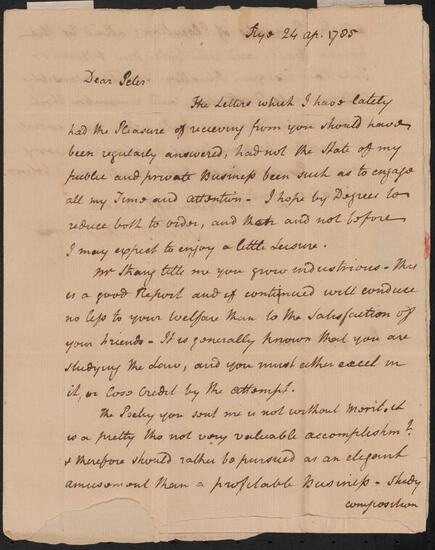 Rye 24 ap. 1785
Dear Peter
The Letters which I have lately
had the Pleasure of recieving from you should have
been regularly answered, had not the State of my
public and private Business been such as to engage
all my Time and attention - I hope by Degrees to
reduce both to order, and then and not before
I may expect to enjoy a little Leisure.
Mr Strang tells me you grow industrious - This
is a good Report and if continued will conduce
no less to your Welfare than to the Satisfaction of
your Friends - It is generally known that you are
studying the Law, and you must either excel in
it, or lose Credit by the attempt.
The Poetry you sent me is not without Merit, it
is a pretty tho not very valuable accomplishmt.
& therefore should rather be pursued as an elegant
amusement than a profitable Business - Study
composition